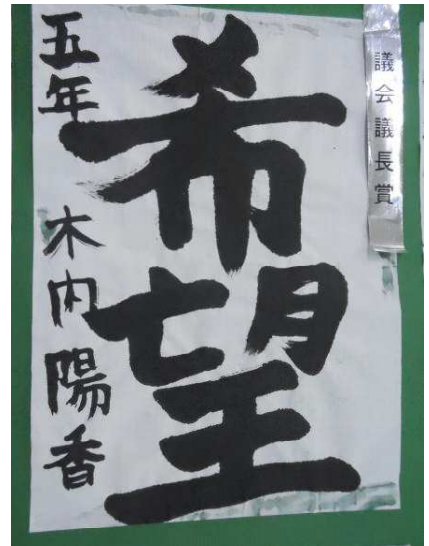 議会議長賞
希望
五年 木内陽香